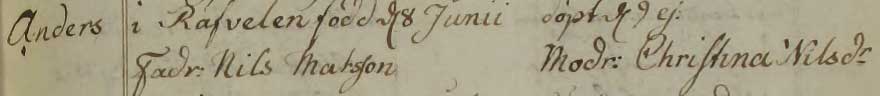 Anders i Rafvelen född d 8 Junii döpt d 9 ej:
Fadr: Nils Matsson Modr: Christina Nilsdr